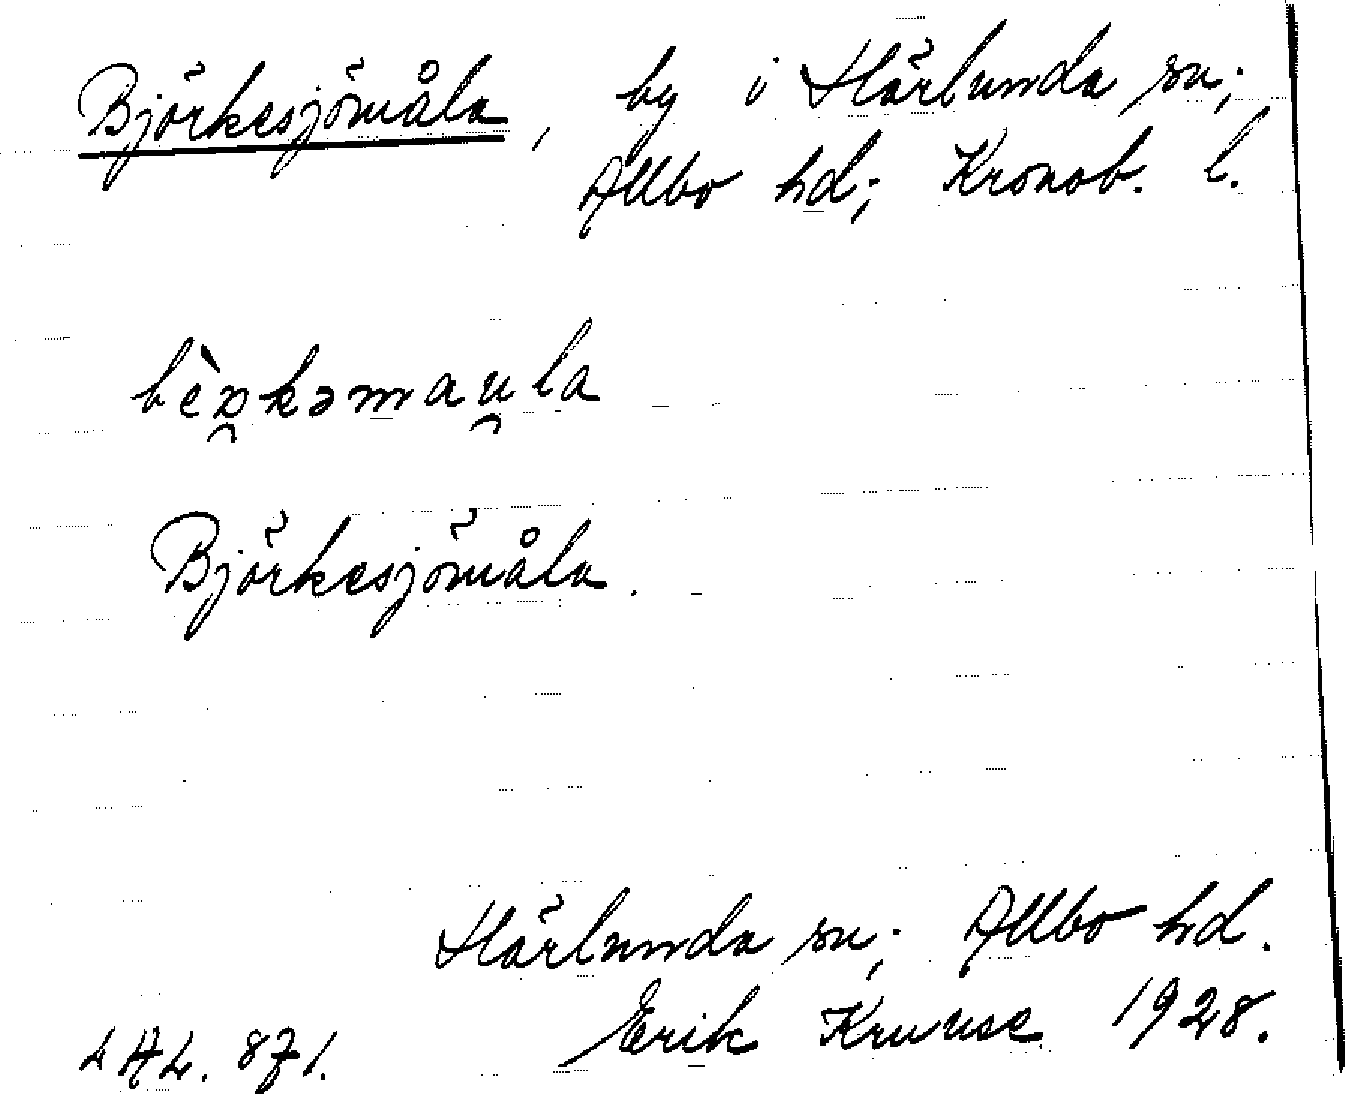 Björkesjömåla, by i Härlunda sn;
Allbo hd; Kronob. l.
bèɒ̯kəmau̯la
Björkesjömåla.
Härlunda sn; Allbo hd.
Erik Kruuse 1928.
LAL. 871.